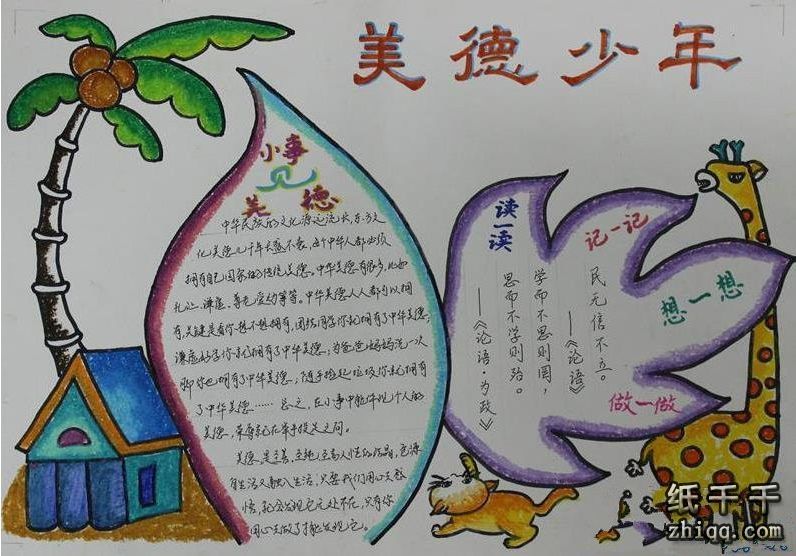 美德少年
小事
见
美德
中华民族的文化源远流长,东方文
化美德几千年长盛不衰,每个中华人都必须
拥有自己国家的传统美德。中华美德有很多,比如
礼让、谦虚、尊老爱幼等等。中华美德人人都可以拥
有,关键是看你想不想拥有,团结同学你就拥有了中华美德;
谦虚好学你就拥有了中华美德;为爸爸妈妈洗一次
脚你也拥有了中华美德;随手捡起垃圾你就拥有
了中华美德……总之,在小事中能体现个人的
美德,荣辱就在举手投足之间。
美德,是至善、至纯、至高人性的结晶,它源
自生活又融入生活,只要我们用心去感
悟,就会发现它无处不在,只有你
用心去做了才能发现它。
读一读
学而不思则罔,
思而不学则殆。
——《论语·为政》
记一记
民无信不立。
——《论语》
想一想
做一做
纸千千
zhiqq.com